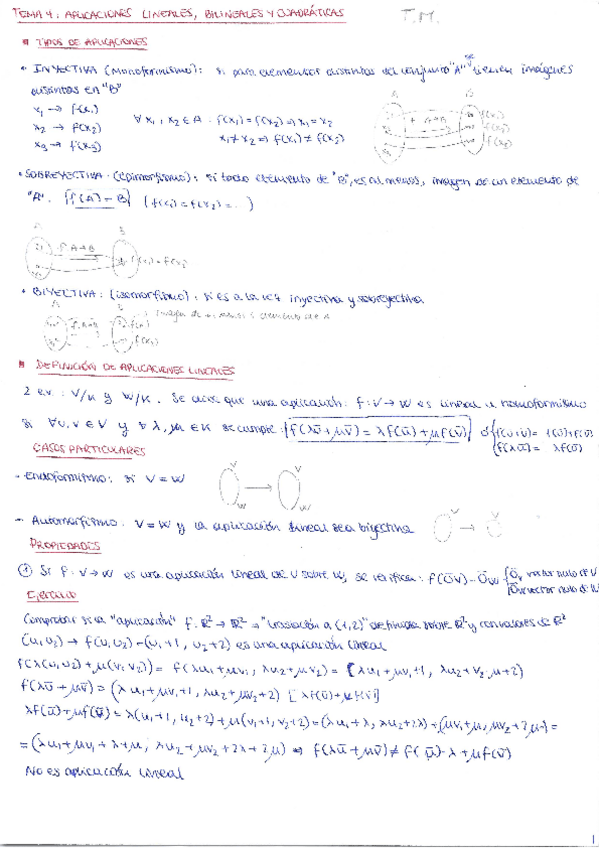 TEMA 4: APLICACIONES LINEALES, BILINEALES Y CUADRÁTICAS
T.M.
TIPOS DE APLICACIONES
• INYECTIVA (Monomorfismo): si para elementos distintos del conjunto "A" se tienen imágenes
distintas en "B"
x₁ → f(x₁)
x₂ → f(x₂)
x₃ → f(x₃)
∀ x₁, x₂ ∈ A · f(x₁) = f(x₂) ⇒ x₁ = x₂
x₁ ≠ x₂ ⇒ f(x₁) ≠ f(x₂)
A B
f A→B
f(x₁)
f(x₂)
f(x₃)
• SOBREYECTIVA · (epimorfismo): si todo elemento de "B", es al menos, imagen de un elemento de
"A". f(A) = B (f(x₁) = f(x₂) = . )
A B
f A→B
f(x₁) = f(x₂)
• BIYECTIVA: (isomorfismo): si es a la vez inyectiva y sobreyectiva
A B
f A→B
f(x₁)
DEFINICIÓN DE APLICACIONES LINEALES
2 e.v.: V/K y W/K. Se dice que una aplicación: f: V → W es lineal u homomorfismo
si ∀ u, v ∈ V y ∀ λ, μ ∈ K se cumple: f(λū + μv̄) = λf(ū) + μf(v̄) ó { f(ū+v̄) = f(ū)+f(v̄)
{ f(λū) = λf(ū)
CASOS PARTICULARES
- Endomorfismo: si V = W
V V
W W
- Automorfismo. V = W y la aplicación lineal sea biyectiva
V V
W W
PROPIEDADES
① Si f: V → W es una aplicación lineal de V sobre W, se verifica: f(Ōv) = Ōw { Ōv vector nulo de V
Ōw vector nulo de W
Ejercicio
Comprobar si la "aplicación" f: ℝ² → ℝ² = "traslación a (1,2)" definida sobre ℝ² y con valores de ℝ²
(u₁, u₂) → f(u₁, u₂) = (u₁ + 1, u₂ + 2) es una aplicación lineal
f(λ(u₁, u₂) + μ(v₁, v₂)) = f(λu₁ + μv₁, λu₂ + μv₂) = (λu₁ + μv₁ + 1, λu₂ + v₂·μ + 2)
f(λū + μv̄) = (λu₁ + μv₁ + 1, λu₂ + μv₂ + 2) [λf(ū) + μf(v̄)]
λf(ū) + μf(v̄) = λ(u₁ + 1, u₂ + 2) + μ(v₁ + 1, v₂ + 2) = (λu₁ + λ, λu₂ + 2λ) + (μv₁ + μ, μv₂ + 2μ) =
= (λu₁ + μv₁ + λ + μ, λu₂ + μv₂ + 2λ + 2μ) ⇒ f(λū + μv̄) ≠ f(ū)·λ + μf(v̄)
No es aplicación lineal
1